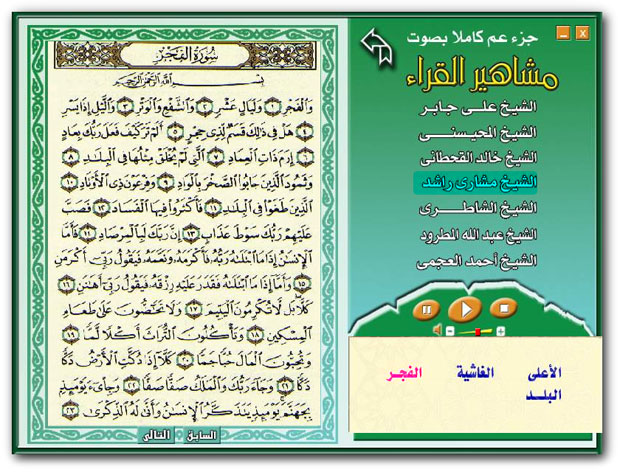 سُورَةُ الفَجْرِ
بِسْمِ اللَّهِ الرَّحْمَٰنِ الرَّحِيمِ
وَالْفَجْرِ ١ وَلَيَالٍ عَشْرٍ ٢ وَالشَّفْعِ وَالْوَتْرِ ٣ وَاللَّيْلِ إِذَا يَسْرِ
٤ هَلْ فِي ذَٰلِكَ قَسَمٌ لِّذِي حِجْرٍ ٥ أَلَمْ تَرَ كَيْفَ فَعَلَ رَبُّكَ بِعَادٍ
٦ إِرَمَ ذَاتِ الْعِمَادِ ٧ الَّتِي لَمْ يُخْلَقْ مِثْلُهَا فِي الْبِلَٰدِ ٨
وَثَمُودَ الَّذِينَ جَابُوا الصَّخْرَ بِالْوَادِ ٩ وَفِرْعَوْنَ ذِي الْأَوْتَادِ ١٠
الَّذِينَ طَغَوْا فِي الْبِلَٰدِ ١١ فَأَكْثَرُوا فِيهَا الْفَسَادَ ١٢ فَصَبَّ
عَلَيْهِمْ رَبُّكَ سَوْطَ عَذَابٍ ١٣ إِنَّ رَبَّكَ لَبِالْمِرْصَادِ ١٤ فَأَمَّا
الْإِنسَٰنُ إِذَا مَا ابْتَلَىٰهُ رَبُّهُ فَأَكْرَمَهُ وَنَعَّمَهُ فَيَقُولُ رَبِّي أَكْرَمَنِ
١٥ وَأَمَّا إِذَا مَا ابْتَلَىٰهُ فَقَدَرَ عَلَيْهِ رِزْقَهُ فَيَقُولُ رَبِّي أَهَٰنَنِ ١٦
كَلَّا بَل لَّا تُكْرِمُونَ الْيَتِيمَ ١٧ وَلَا تَحَٰضُّونَ عَلَىٰ طَعَامِ
الْمِسْكِينِ ١٨ وَتَأْكُلُونَ التُّرَاثَ أَكْلًا لَّمًّا ١٩
وَتُحِبُّونَ الْمَالَ حُبًّا جَمًّا ٢٠ كَلَّا إِذَا دُكَّتِ الْأَرْضُ دَكًّا
دَكًّا ٢١ وَجَاءَ رَبُّكَ وَالْمَلَكُ صَفًّا صَفًّا ٢٢ وَجِايءَ يَوْمَئِذٍ
بِجَهَنَّمَ يَوْمَئِذٍ يَتَذَكَّرُ الْإِنسَٰنُ وَأَنَّىٰ لَهُ الذِّكْرَىٰ ٢٣
السابق
التالى
جزء عم كاملا بصوت
مشاهير القراء
الشيخ على جابر
الشيخ المحيسنى
الشيخ خالد القحطانى
الشيخ مشارى راشد
الشيخ الشاطرى
الشيخ عبد الله المطرود
الشيخ أحمد العجمى
الأعلى الغاشية الفجر
البلد